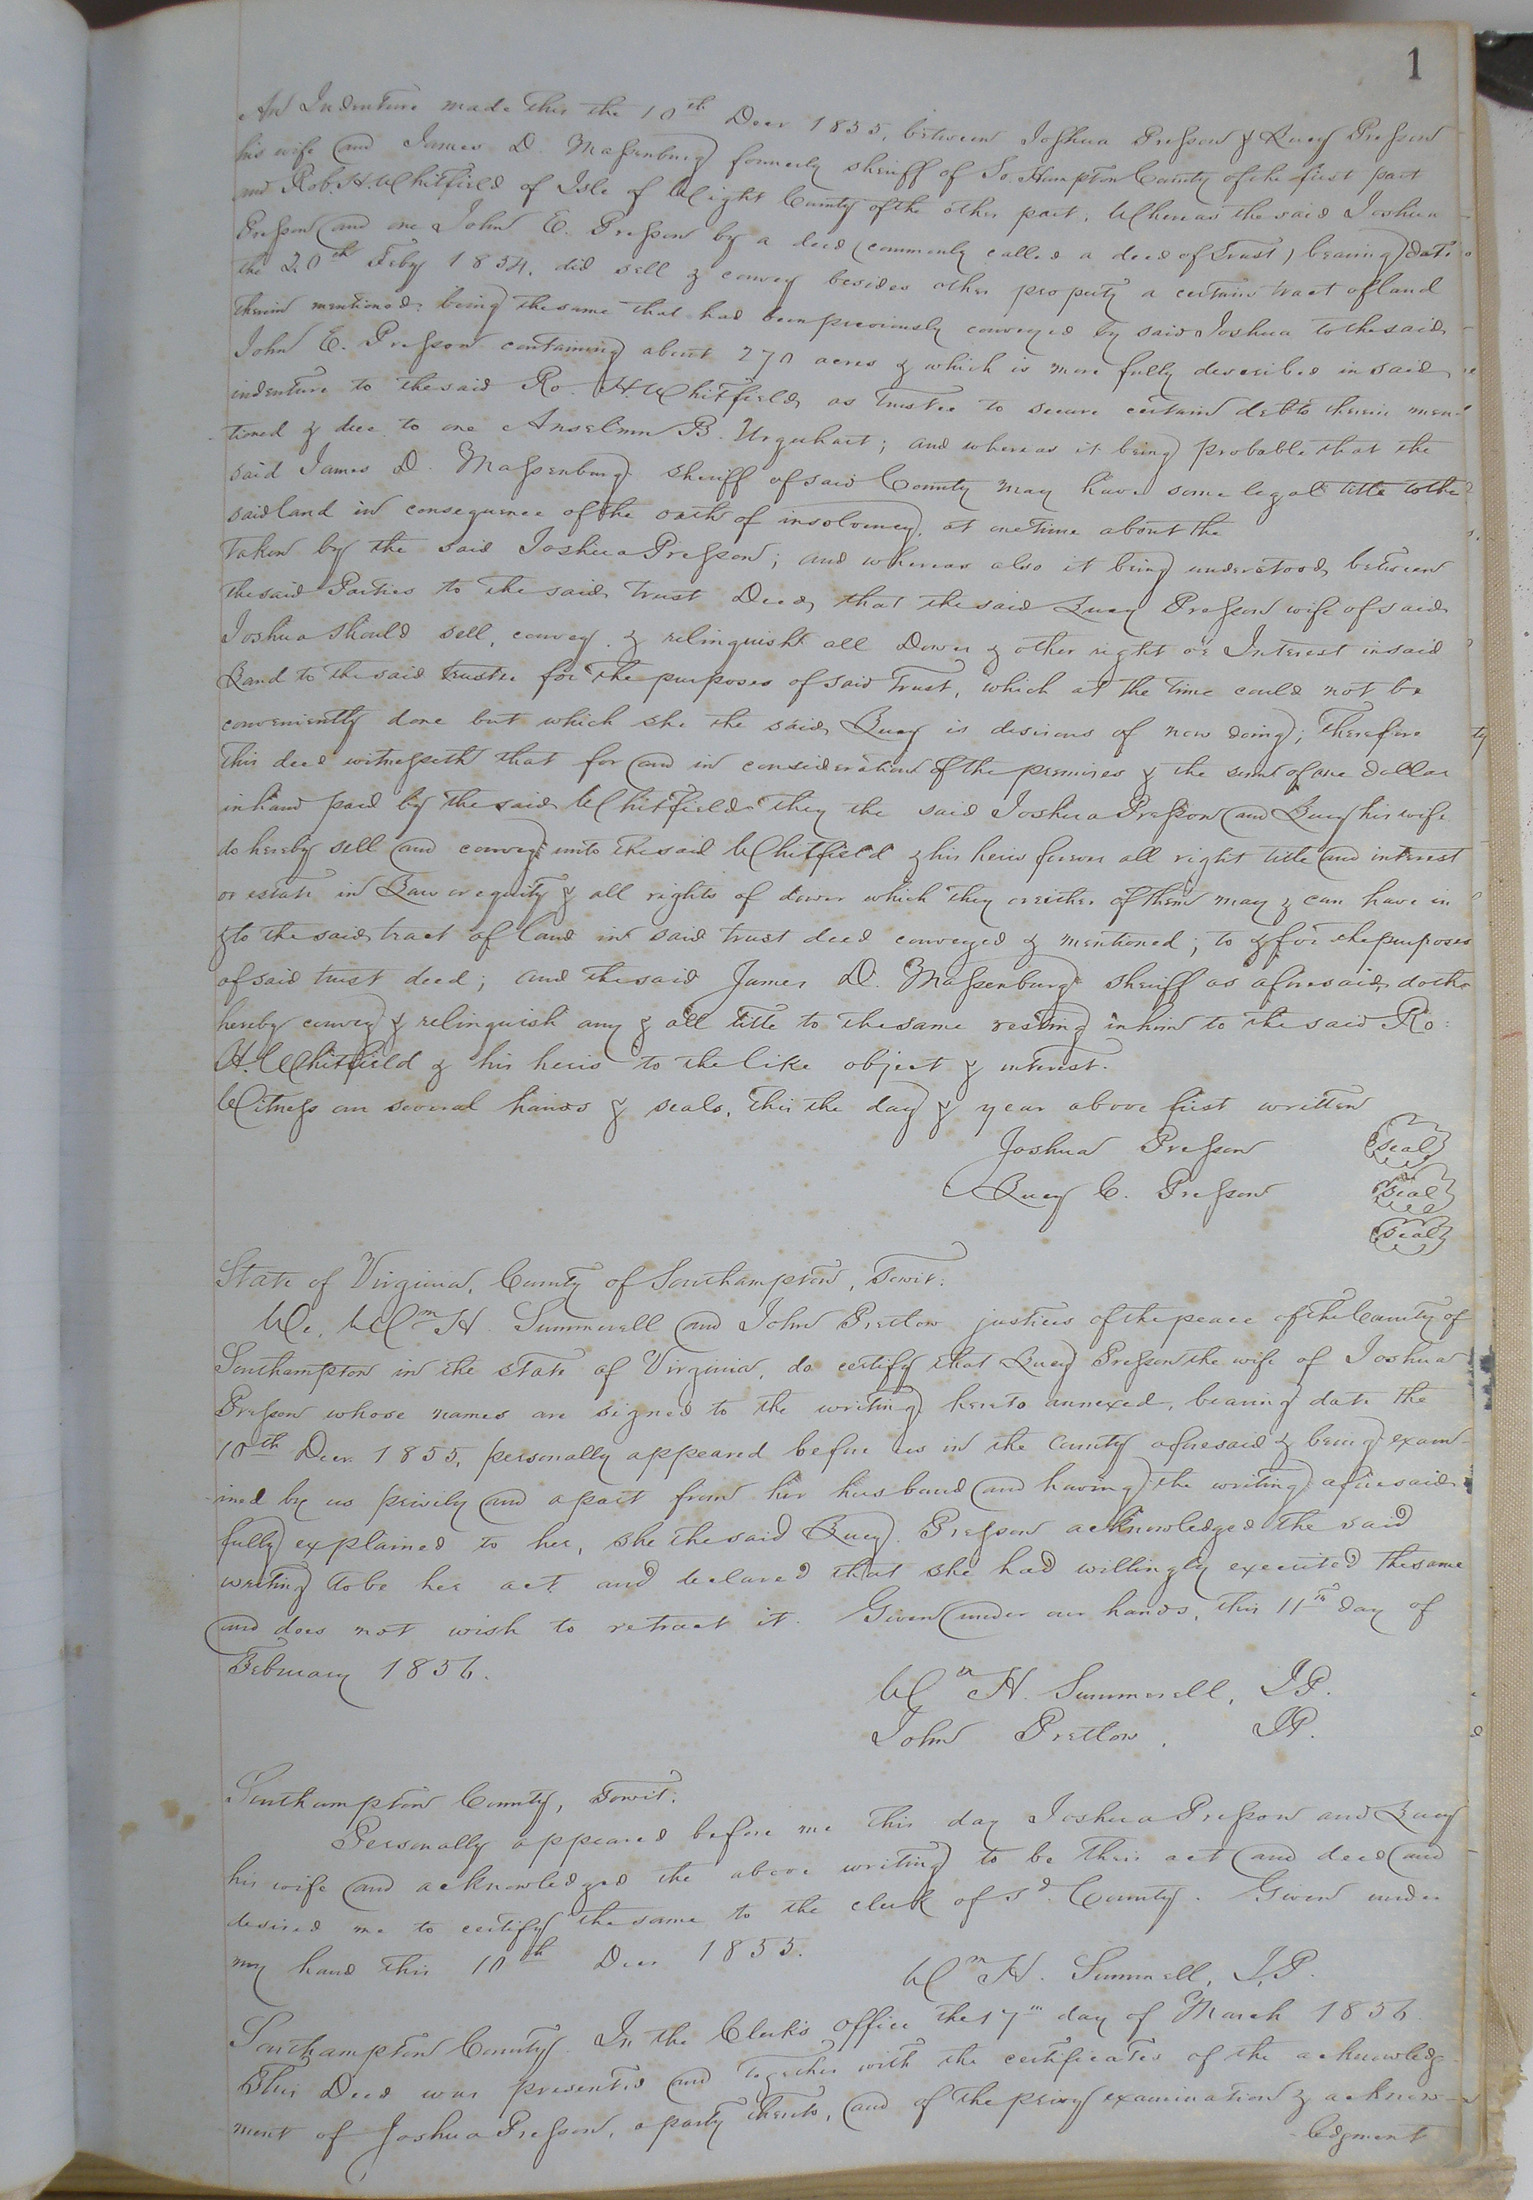 1
An Indenture made this the 10th Decr 1855, between Joshua Presson & Lucy Presson
his wife and James D. Massenburg formerly sheriff of So. Hampton County of the first part
and Rob. H. Whitfield of Isle of Wight County of the other part. Whereas the said Joshua
Presson and one John E. Presson by a deed (commonly called a deed of trust) bearing date
the 20th Feby 1854, did sell & convey besides other property a certain tract of land
therein mentioned being the same that had been previously conveyed by said Joshua to the said
John E. Presson containing about 270 acres & which is more fully described in said
indenture to the said Ro. H. Whitfield as trustee to secure certain debts therein men-
tioned & due to one Anselmn B. Urquhart; and whereas it being probable that the
said James D. Massenburg sheriff of said County may have some legal title to the
said land in consequence of the oath of insolvency, at one time about the
taken by the said Joshua Presson; and whereas also it being understood between
the said Parties to the said trust Deed, that the said Lucy Presson wife of said
Joshua should sell, convey & relinquish all Dower & other right or Interest in said
Land to the said trustee for the purposes of said trust, which at the time could not be
conveniently done but which she the said Lucy is desirous of now doing; Therefore
this deed witnesseth that for and in consideration of the premises & the sum of one dollar
in hand paid by the said Whitfield they the said Joshua Presson and Lucy his wife
do hereby sell and convey unto the said Whitfield & his heirs forever all right title and interest
or estate in Law or equity & all rights of dower which they or either of them may & can have in
& to the said tract of land in said trust deed conveyed & mentioned; to & for the purposes
of said trust deed; and the said James D. Massenburg sheriff as aforesaid doth
hereby convey & relinquish any & all title to the same resting in him to the said Ro:
H. Whitfield & his heirs to the like object & interest.
Witness our several hands & seals, this the day & year above first written
Joshua Presson (seal)
Lucy C. Presson (seal)
(seal)
State of Virginia, County of Southampton, towit:
We, Wm H. Summerell and John Pretlow justices of the peace of the County of
Southampton in the state of Virginia, do certify that Lucy Presson the wife of Joshua
Presson whose names are signed to the writing hereto annexed, bearing date the
10th Decr 1855, personally appeared before us in the County aforesaid & being exam-
ined by us privily and apart from her husband and having the writing aforesaid
fully explained to her, she the said Lucy Presson acknowledged the said
writing to be her act and declared that she had willingly executed the same
and does not wish to retract it. Given under our hands, this 11th day of
February 1856.
Wm H. Summerell, J.P.
John Pretlow, J.P.
Southampton County, towit:
Personally appeared before me this day Joshua Presson and Lucy
his wife and acknowledged the above writing to be their act and deed and
desired me to certify the same to the clerk of sd County. Given under
my hand this 10th Decr 1855.
Wm H. Summrell, J.P.
Southampton County. In the Clerk's office the 17th day of March 1856
This Deed was presented and together with the certificates of the acknowledg-
ment of Joshua Presson, a party thereto, and of the privy examination & acknow-
ledgment